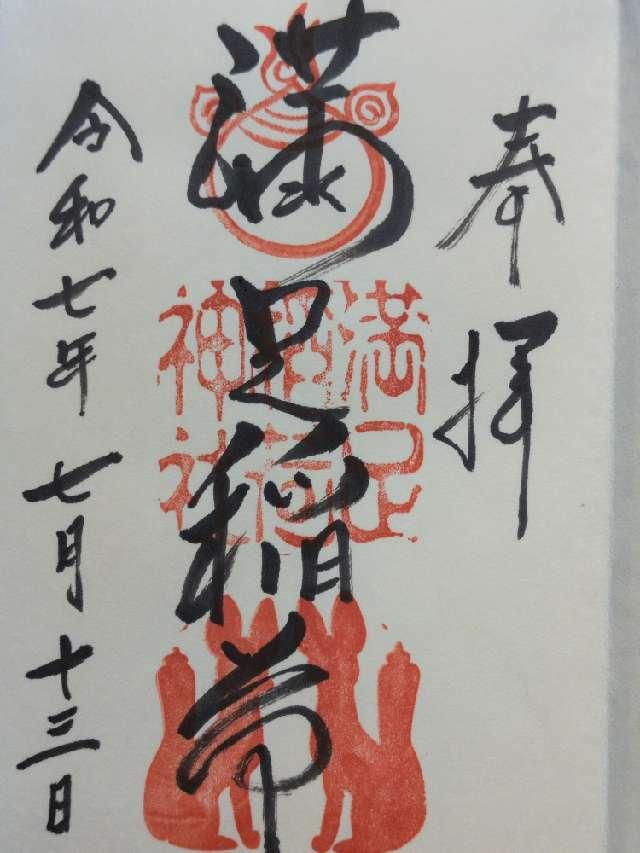 奉拝
満足稲荷
満足
稲荷
神社
令和七年七月十三日